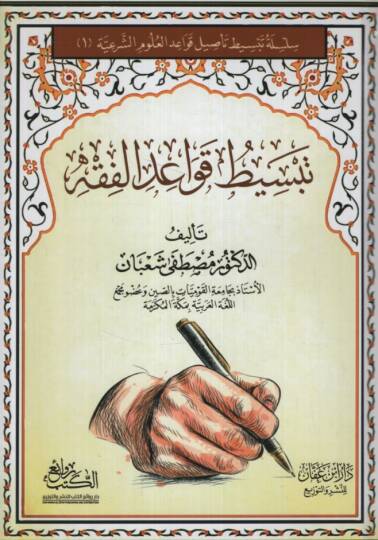 سلسلة تبسيط تأصيل قواعد العلوم الشرعية (١)
تبسيط قواعد الفقه
تأليف
الدكتور مصطفى شعبان
الأستاذ بجامعة القوميات بالصين وعضو مجمع
اللغة العربية بمكة المكرمة
روائع
الكتب
دار روائع الكتب للنشر والتوزيع
دار ابن عفان
للنشر والتوزيع